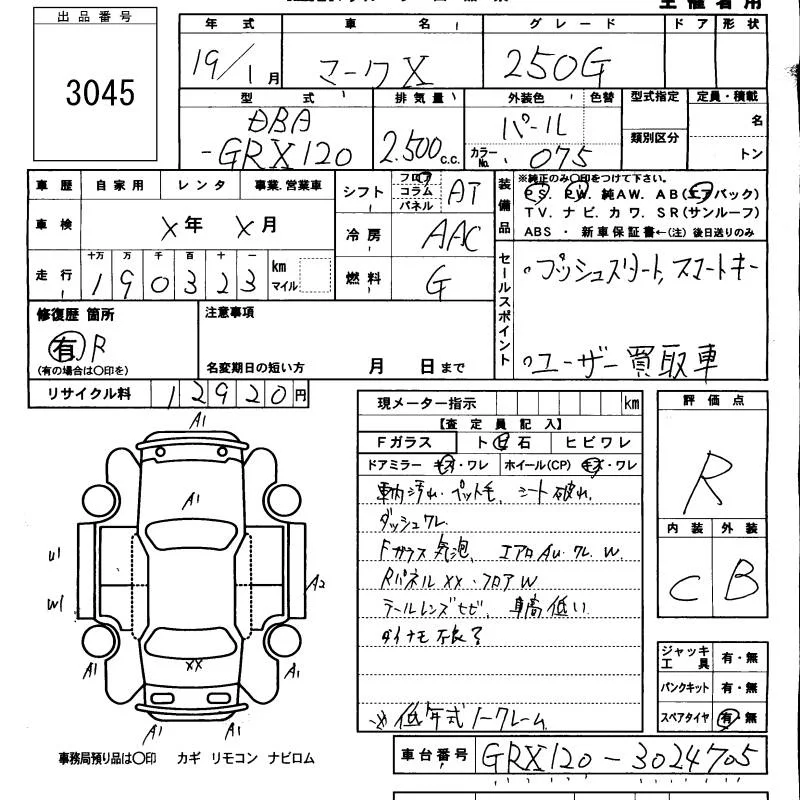 出品番号
3045
年式 車名 グレード ドア 形状
19/1月 マークX 250G
型式 排気量 外装色 色替 型式指定 定員・積載
DBA
-GRX120 2.500c.c. パール 類別区分 名
カラーNo. 075 トン
車歴 自家用 レンタ 事業.営業車
シフト フロア コラム パネル AT
装備品 ※純正のみ○印をつけて下さい。
PS. PW. 純AW. AB(エアバック)
TV. ナビ. カワ. SR(サンルーフ)
ABS ・ 新車保証書←(注)後日送りのみ
車検 X年 X月
冷房 AAC
走行 十万 万 千 百 十 一
190323 km マイル
燃料 G
セールスポイント
・プッシュスタート,スマートキー
・ユーザー買取車
修復歴 箇所
有 R
(有の場合は○印を)
注意事項
名変期日の短い方 月 日まで
リサイクル料 12920円
現メーター指示 km
【査定員記入】
Fガラス ト ビ 石 ヒビワレ
ドアミラー キズ・ワレ ホイール(CP) キズ・ワレ
車内汚れ.ペット毛, シート破れ.
ダッシュワレ
Fガラス気泡, エアロAU.ワレW.
RパネルXX.フロアW
テールレンズヒビ, 車高低い
ダイナモ不良
※低年式ノークレーム
評価点
R
内装 外装
C B
ジャッキ工具 有・無
パンクキット 有・無
スペアタイヤ 有・無
A1
A1
U1
W1
A2
A1
XX
A1
A1
A1
事務局預り品は○印 カギ リモコン ナビロム
車台番号 GRX120-3024705